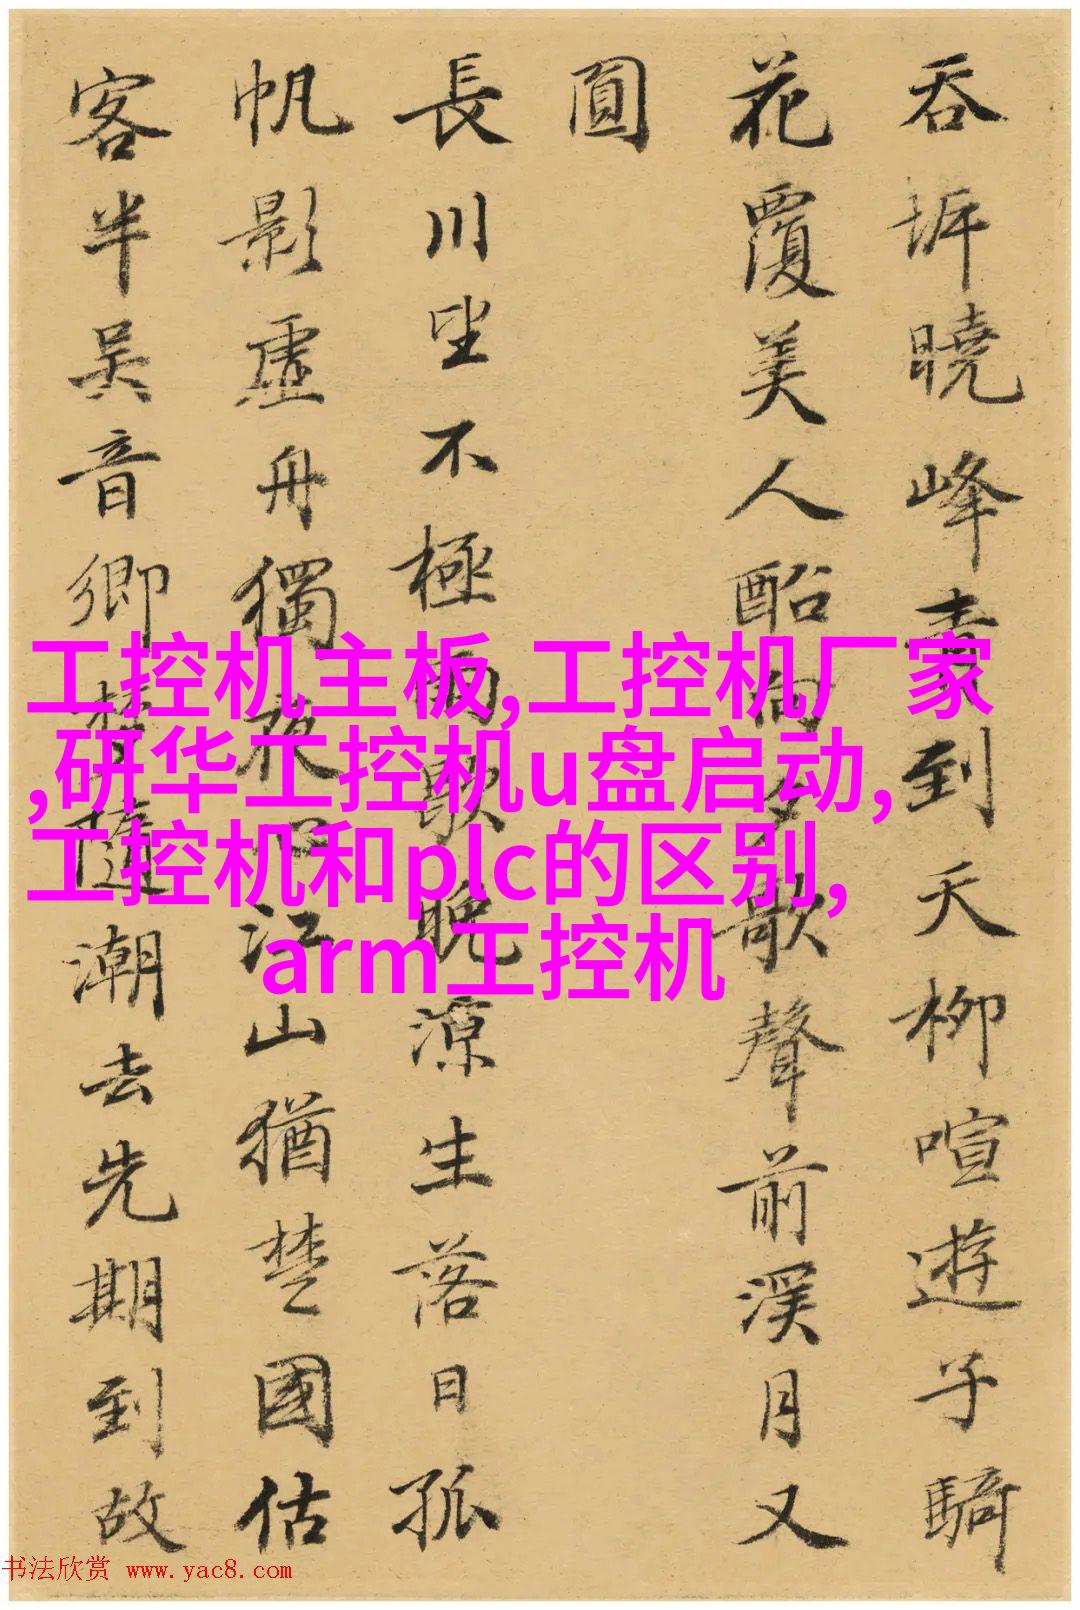 吞坼曉峰青到天柳喧遊子騎
花覆美人船向夕歌聲前溪月又
圓
長川望不極雨歇晚涼生落日孤
帆影虛舟獨夜心江山猶楚國估
客半吳音鄉夢隨潮去先期到故
工控机主板,工控机厂家
,研华工控机u盘启动,
工控机和plc的区别,
arm工控机
书法欣赏 www.yac8.com